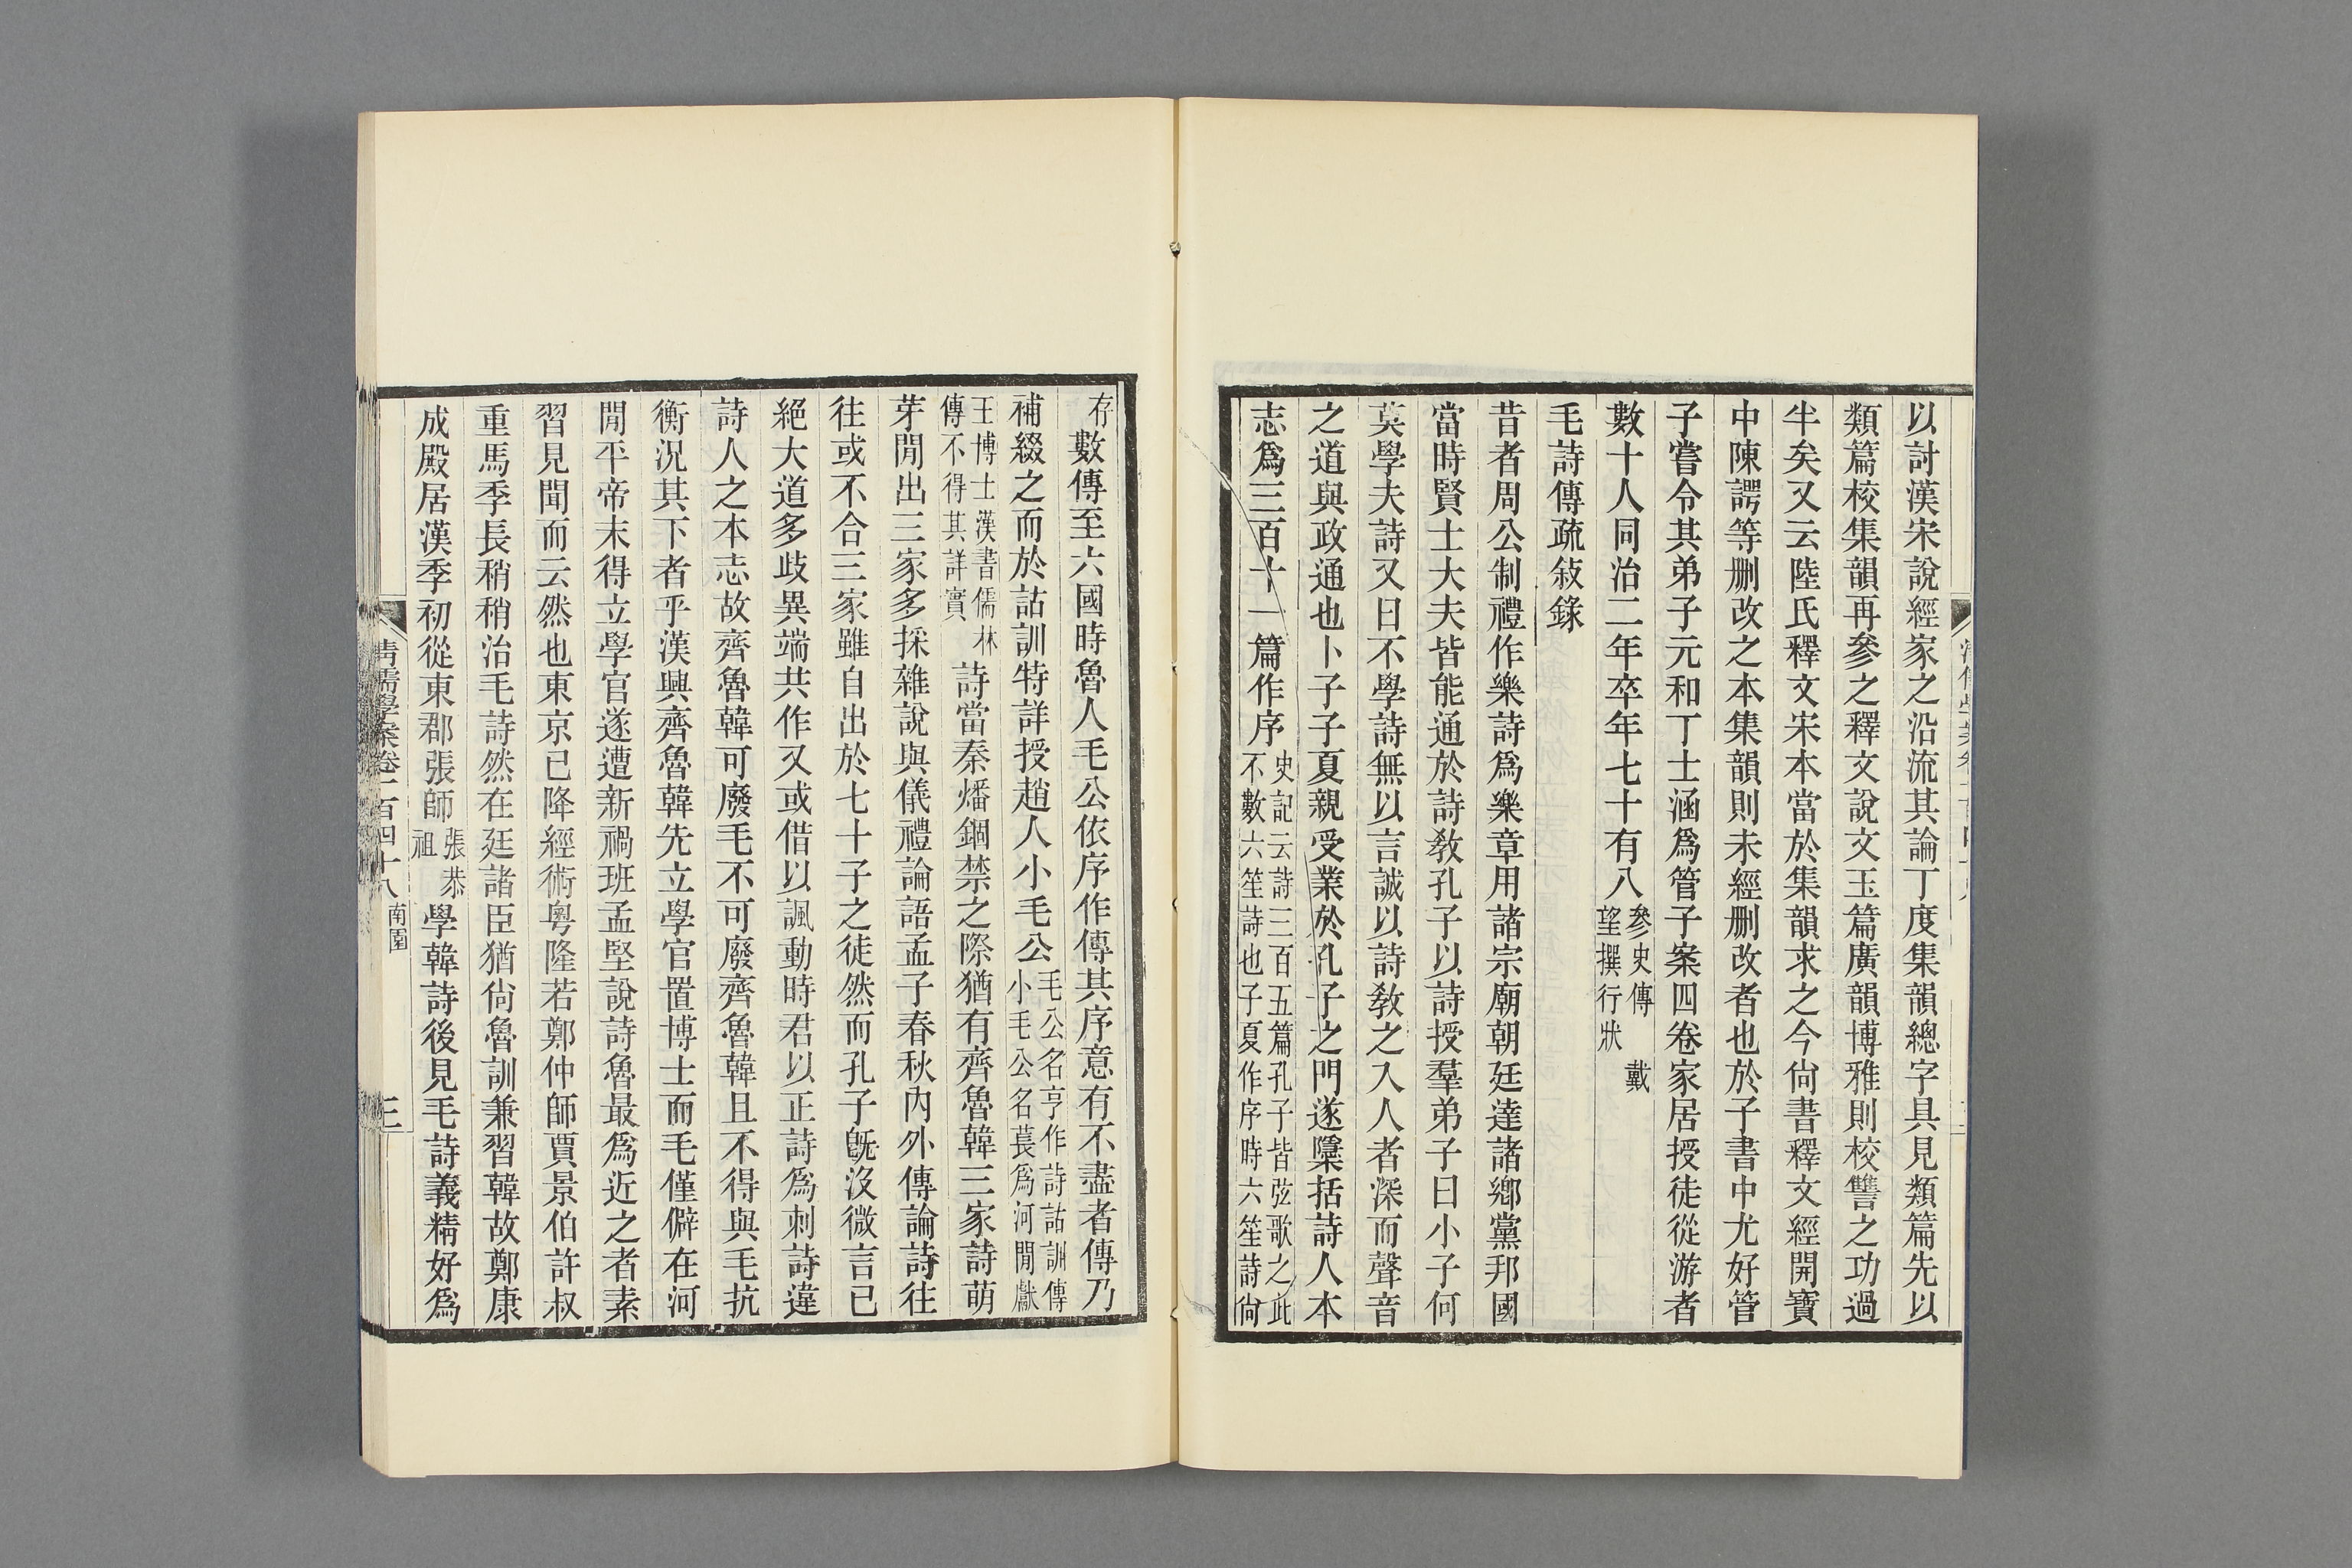 以討漢宋說經家之沿流其論丁度集韻總字具見類篇先以
類篇校集韻再參之釋文說文玉篇廣韻博雅則校讐之功過
半矣又云陸氏釋文宋本當於集韻求之今尙書釋文經開寶
中陳諤等刪改之本集韻則未經刪改者也於子書中尤好管
子嘗令其弟子元和丁士涵爲管子案四卷家居授徒從游者
數十人同治二年卒年七十有八參史傳 戴望撰行狀
毛詩傳疏敍錄
昔者周公制禮作樂詩爲樂章用諸宗廟朝廷達諸鄕黨邦國
當時賢士大夫皆能通於詩敎孔子以詩授羣弟子曰小子何
莫學夫詩又曰不學詩無以言誠以詩敎之入人者深而聲音
之道與政通也卜子子夏親受業於孔子之門遂櫽括詩人本
志爲三百十一篇作序史記云詩三百五篇孔子皆弦歌之此不數六笙詩也子夏作序時六笙詩尙
存數傳至六國時魯人毛公依序作傳其序意有不盡者傳乃
補綴之而於詁訓特詳授趙人小毛公毛公名亨作詩詁訓傳小毛公名萇爲河閒獻
王博士漢書儒林傳不得其詳實詩當秦燔錮禁之際猶有齊魯韓三家詩萌
芽閒出三家多採雜說與儀禮論語孟子春秋內外傳論詩往
往或不合三家雖自出於七十子之徒然而孔子旣沒微言已
絕大道多歧異端共作又或借以諷動時君以正詩爲刺詩違
詩人之本志故齊魯韓可廢毛不可廢齊魯韓且不得與毛抗
衡況其下者乎漢興齊魯韓先立學官置博士而毛僅僻在河
閒平帝末得立學官遂遭新禍班孟堅說詩魯最爲近之者素
習見聞而云然也東京已降經術粤隆若鄭仲師賈景伯許叔
重馬季長稍稍治毛詩然在廷諸臣猶尙魯訓兼習韓故鄭康
成殿居漢季初從東郡張師張恭祖學韓詩後見毛詩義精好爲
淸儒學案卷一百四十八 南園
三